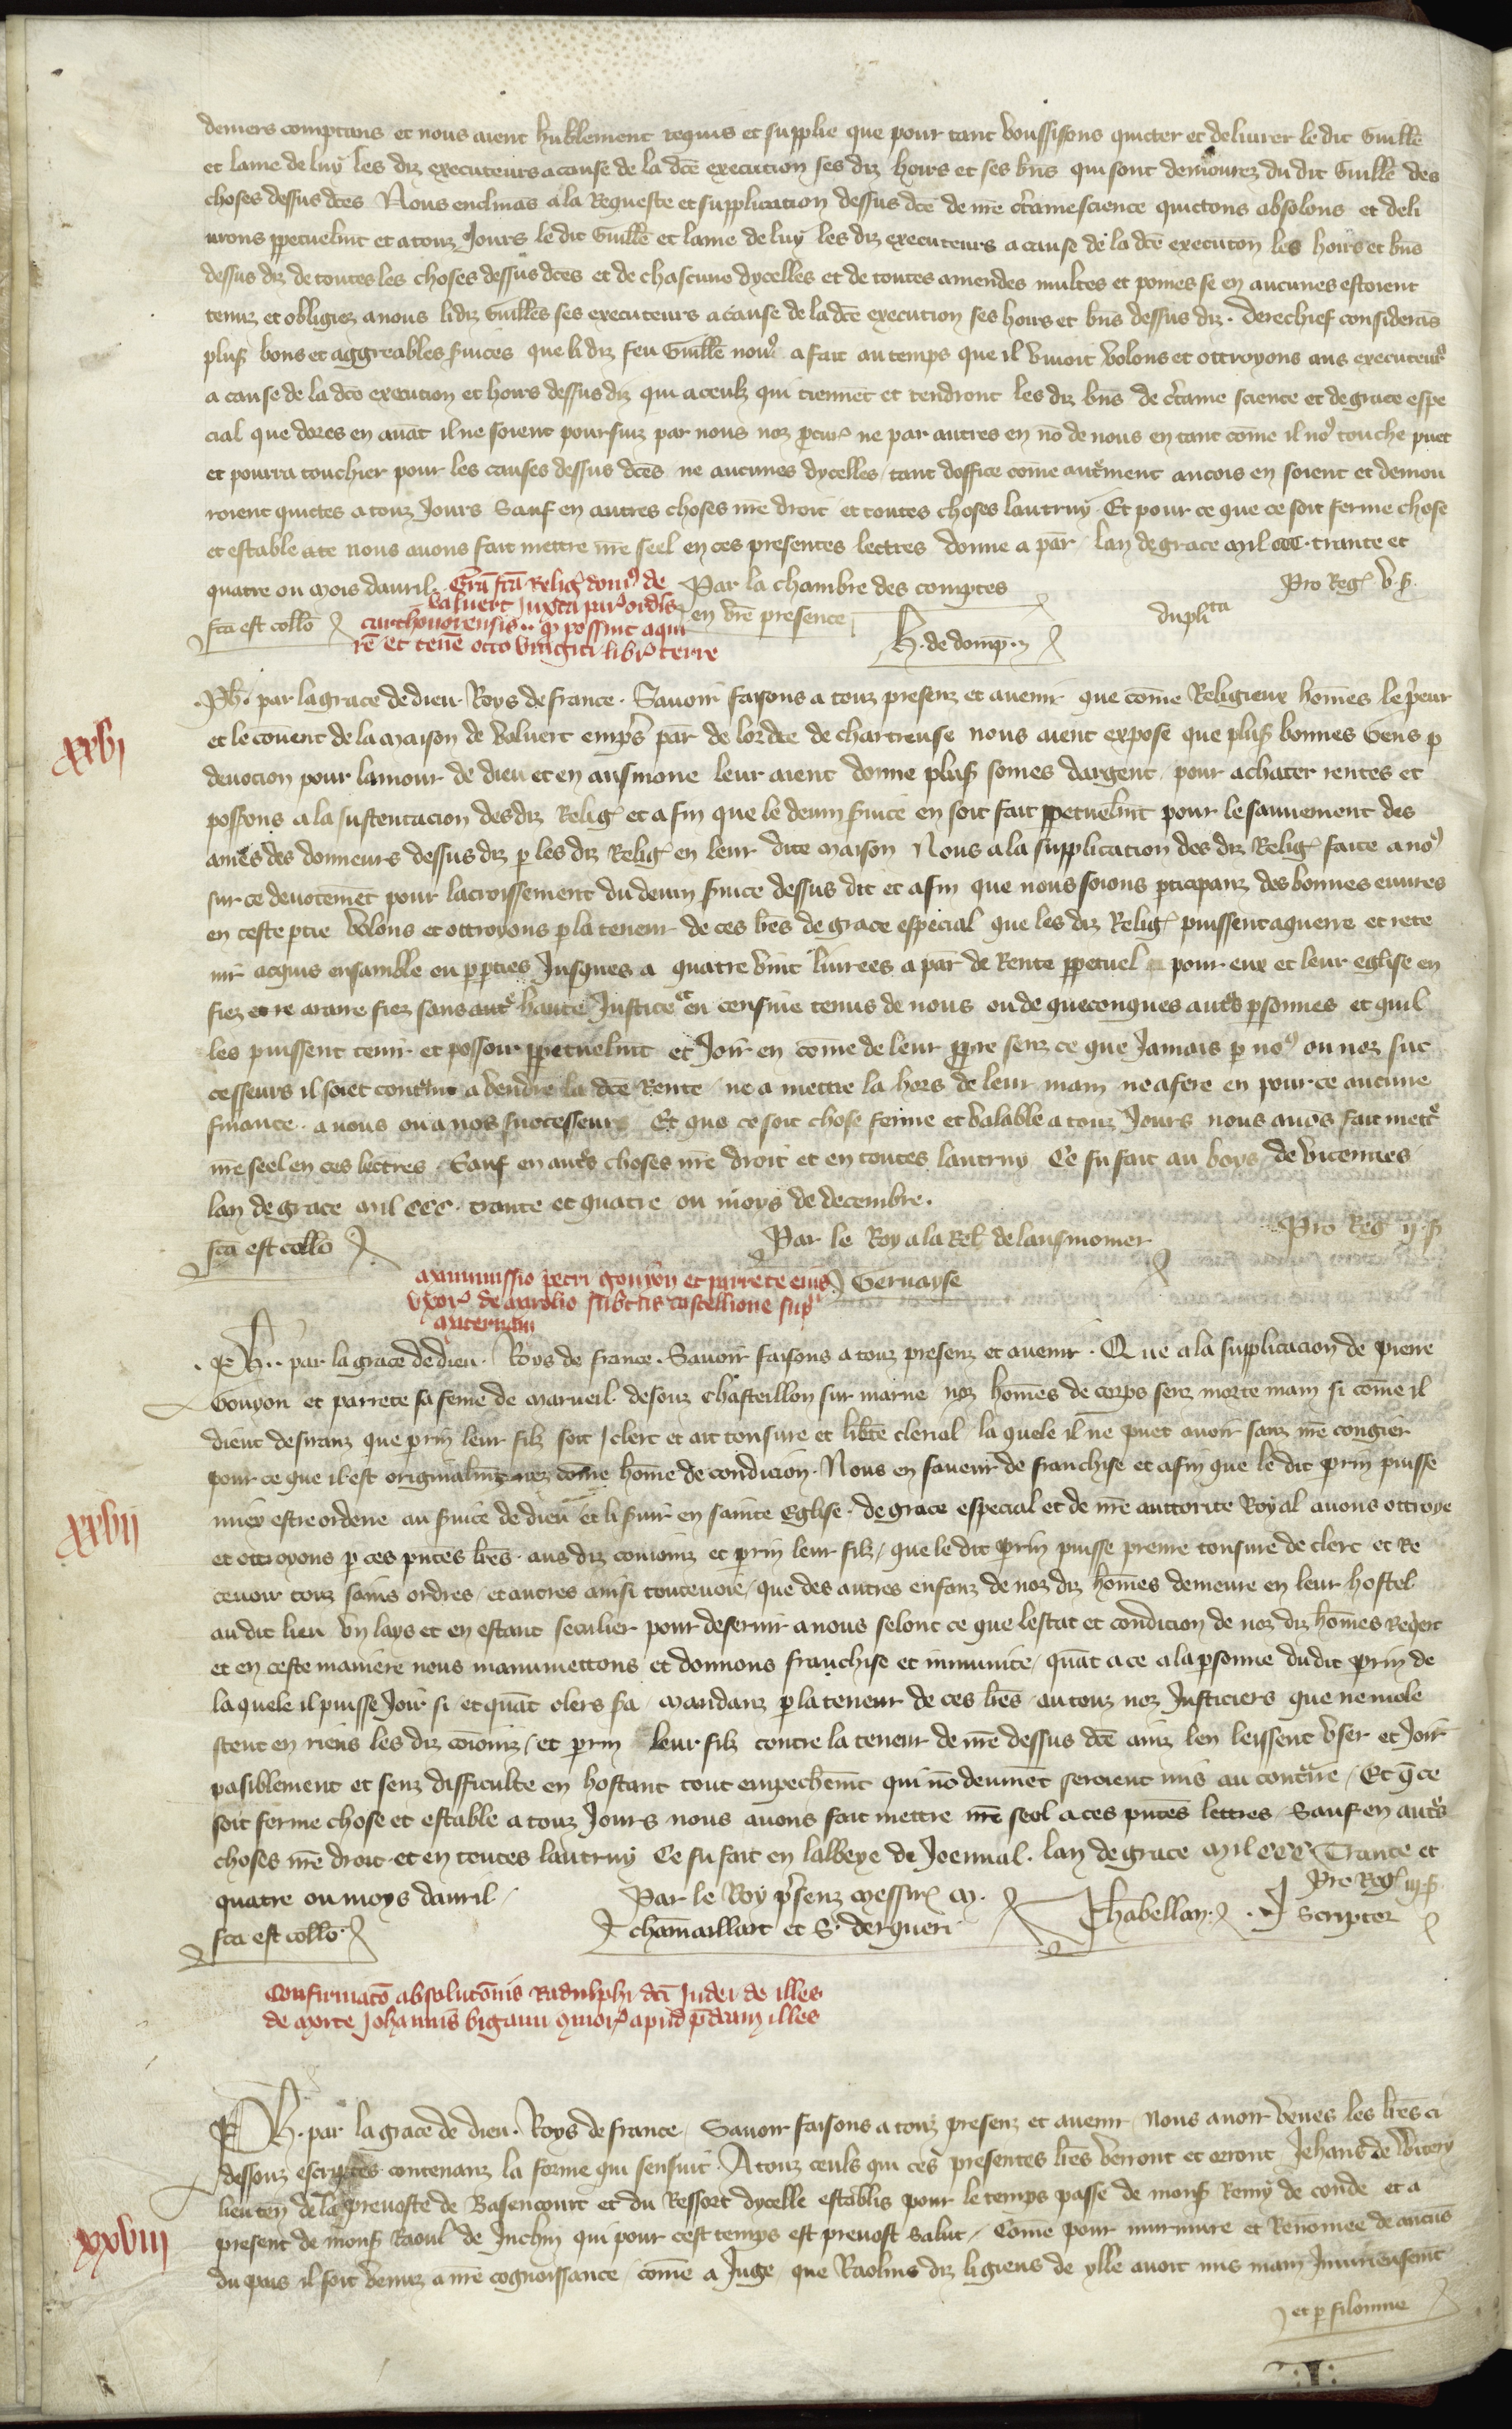 deniers comptans et nous aient humblement requis et supplie que pour tant voussissons quicter et deliurer le dit Guille
et lame de luy les diz executeurs a cause de la dce execution ses diz hoirs et ses bns qui sont demourez du dit Guille des
choses dessus dces Nous enclinas a la Requeste et supplication dessus dce de nre ctaine science quictons absolons et deli
urons ppetuelmt et a touz Jours le dit Guille et lame de luy les diz executeurs a cause de la dce executon les hoirs et bns
dessus diz de toutes les choses dessus dces et de chascune dycelles et de toutes amendes multes et poines se en aucunes estoient
tenuz et obligiez a nous li diz Guilles ses executeurs a cause de la dce execution ses hoirs et bns dessus diz . Derechief consideras
plus bons et aggreables suices que li diz feu Guille nous a fait au temps que il viuoit volons et ottroyons aus executeurs
a cause de la dce execution et hoirs dessus diz qui a ceulz qui tiennet et tendront les diz bns de ctaine science et de grace espe
cial que dores en auat il ne soient poursuiz par nous noz pcur ne par autres en no de nous en tant come il no9 touche puet
et pourra touchier pour les causes dessus dces ne aucunes dycelles tant doffice come autment ancois en soient et demou
roient quictes a touz Jours Sauf en autres choses nre droit et toutes choses lautruy Et pour ce que ce soit ferme chose
et estable a te nous auons fait mettre nre seel en ces presentes lettres donne a par lan de grace mil ccc . trante et
quatre ou mois dauril . Par la chambre des comptes Pro Reg v s
en vre presence dupltta
fca est collo H . de domp .
Gra fca Relig dom9 de
valuert Juxta par ordis
carthousiensis .. q possint aqui
re et tene octo viginti libr terre
xxvi
Ph . par la grace de dieu Roys de france . Sauoir faisons a touz presenz et auenir que come Religieux homes le peur
et le couent de la maison de valuert emps par de lordre de chartreuse nous aient expose que plus bonnes Gens p
deuocion pour lamour de dieu et en ausmone leur aient donne plus somes dargent pour achater rentes et
possons a la sustentacion des diz Relig et a fin que le deuin suice en soit fait ppetuelmt pour le sauuement des
ames des donneurs dessus diz p les diz Relig en leur dite maison Nous a la supplication des diz Relig faite a no9
sur ce deuotemet pour lacroissement du deuin suice dessus dit et afin que nous soions pticipanz des bonnes euures
en ceste ptie volons et ottroyons p la teneur de ces lres de grace especial que les diz Relig puissent aquerre et rete
nir acquis ensamble ou p pties Jusques a quatre vint liurees a par de Rente ppetuel pour eux et leur eglise en
fiez et re arriere fiez sans aut haute Justice et en censiue tenus de nous ou de queconques auts psonnes et quil
les puissent tenir et possoir ppetuelmt et Joir en come de leur ppre senz ce que Jamais p no9 ou noz suc
cesseurs il soiet contint a vendre la dce Rente ne a mettre la hors de leur main ne a fere en pour ce aucune
finance . a nous ou a nos successeurs Et que ce soit chose ferme et valable a touz Jours nous auos fait mett
nre seel en ces lettres . Sauf en auts choses nre droit et en toutes lautruy Ce fu fait au boys de vicennes
lan de grace mil ccc . trante et quatre ou moys de decembre .
Par le Roy a la Rel de lausmonier Pro Reg ij s
fca est collo Geruayse
manumissio petri gouyon et parrete eius
uxor de marolio subtus castellione sup
maternam
Ph .. par la grace de dieu . Roys de france . Sauoir faisons a touz presenz et auenir . Que a la supplicacion de pierre
Gouyon et parrete sa feme de marueil . desouz Chasteillon sur marne noz homes de corps senz morte main si come il
dient desiranz que prin leur filz soit clerc et ait tonsure et libte clerical la quele il ne puet auoir sanz nre congier
pour ce que il est originalmt nez come home de condicion . Nous en faueur de franchise et afin que le dit prin puisse
miex estre ordene au suice de dieu et li suir en sainte Eglise . de grace especial et de nre auttorite Royal auons ottroye
et ottroyons p ces pntes lres . aus diz conioinz et prin leur filz / que le dit prin puisse prenre tonsure de clerc et Re
ceuoir touz sains ordres / et autres ainsi touteuoie / que des autres enfanz de noz diz homes demeure en leur hostel
au dit lieu vn lays et en estant seculier pour deseruir a nous selonc ce que lestat et condicion de noz diz homes requert
et en ceste maniere nous manumettons et donnons franchise et inmunite / quat a ce a la psonne du dit prin de
la quele il puisse Joir si et quat clers sa / mandanz p la teneur de ces lres au touz noz Justiciers que ne mole
stent en riens les diz coioniz / et prin leur filz contre la teneur de nre dessus dce ainz len leissent vser et Joir
pasiblement et senz difficulte en hostant tout empechemt qui no deumet seroient mis au contre / Et q ce
soit ferme chose et estable a touz Jours nous auons fait mettre nre seel a ces pntes lettres / Sauf en auts
choses nre droit et en toutes lautruy Ce fu fait en labbeye de Joenual . lan de grace mil ccc Trante et
quatre ou moys dauril / Par le Roy psenz messire m . Pro Reg iij s
fca est collo chamaillart et S . derqueri Chabellan . Scriptor
xxvii
Confirmato absolutonis Radulphi dci Judei de illes
de morte Johannis bigami apud pdcam illes
Ph . par la grace de dieu . Roys de france / Sauoir faisons a touz presenz et auenir / Nous auoir veues les lres ci
dessouz escriptes contenanz la forme qui sensuit . A touz ceuls qui ces presentes lres verront et orront Jehans de vitery
lieuten de la preuoste de Basencourt et du Ressort dycelle establis pour le temps passe de mons Remy de conde et a
present de mons Raoul de Juchy qui pour cest temps est preuost salut / Come pour murmure et Renomee de aucus
du pais il soit venuz a nre cognoissance come a Juge / que Raolins diz ligieus de ylle auoit mis main Iniurieusemt
xxviii
et p filonnie